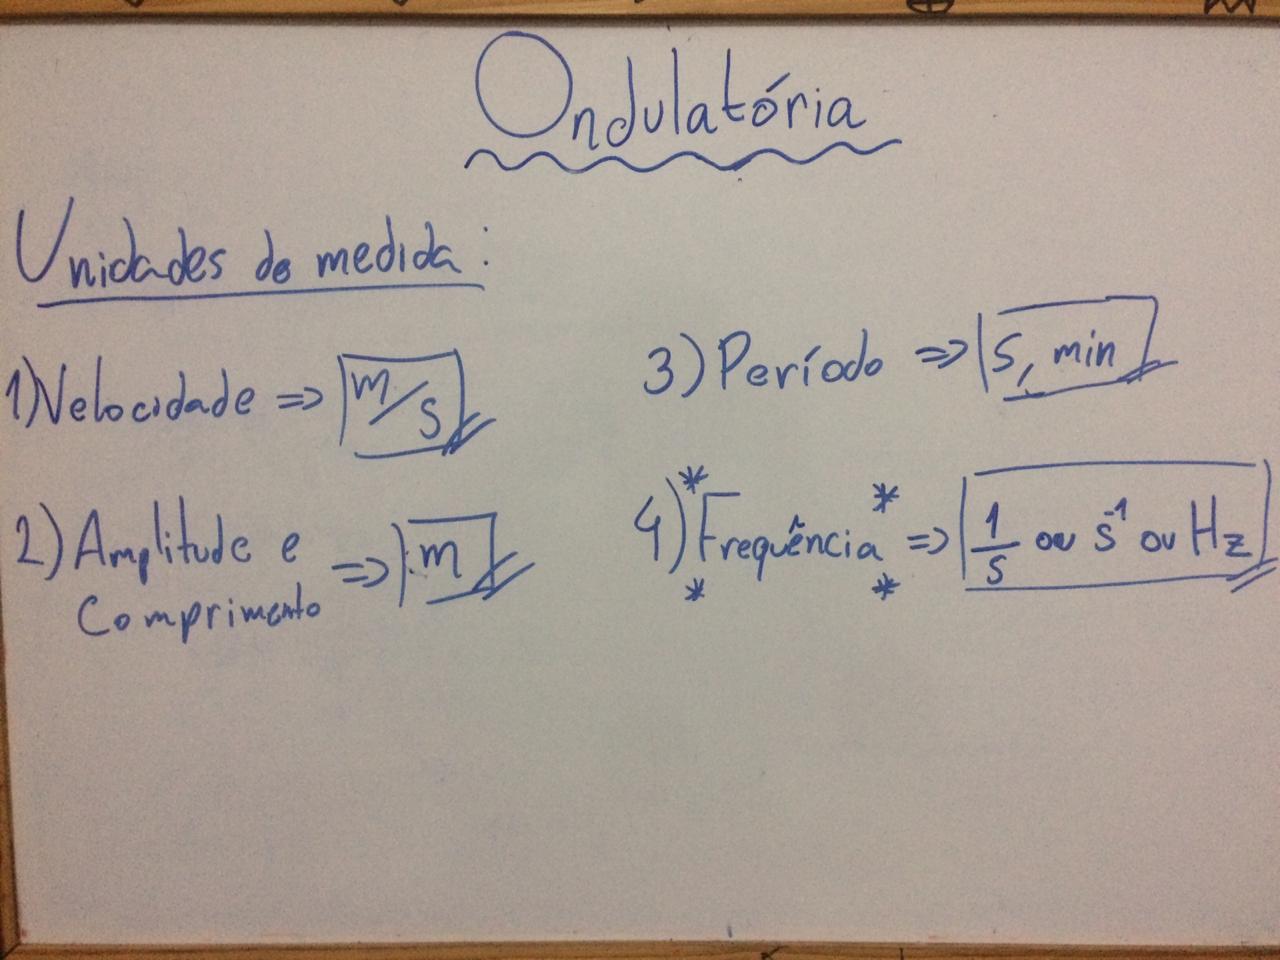 Ondulatória
Unidades de medida:
1) Velocidade => m/s
2) Amplitude e
Comprimento => m
3) Período => s, min
4) *Frequência* => 1/s ou s⁻¹ ou Hz
* *